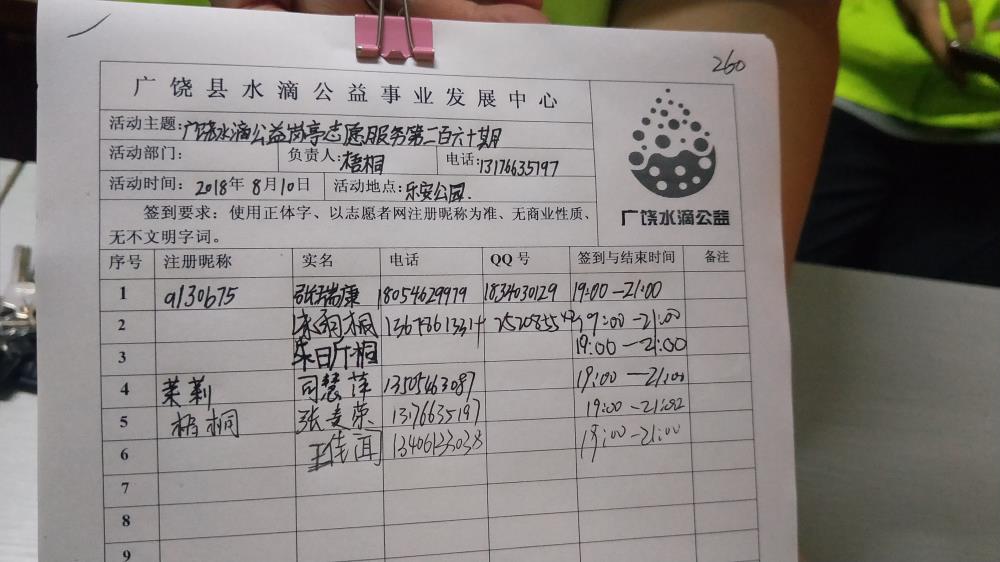 260
广饶县水滴公益事业发展中心
活动主题:广饶水滴公益岗亭志愿服务第二百六十期
活动部门: 负责人:梧桐 电话:13176635197
活动时间: 2018年8月10日 活动地点:乐安公园.
签到要求：使用正体字、以志愿者网注册昵称为准、无商业性质、
无不文明字词。
广饶水滴公益
序号 注册昵称 实名 电话 QQ号 签到与结束时间 备注
1 a130675 张瑞康 18054629979 1834030129 19:00-21:00
2 桐 19:00-21:00
3 朱 桐 19:00-21:00
4 茉莉 司慧萍 13505463087 19:00-21:00
5 梧桐 张麦荣 13176635197 19:00-21:00
6 王佳闻 19:00-21:00
7
8
9